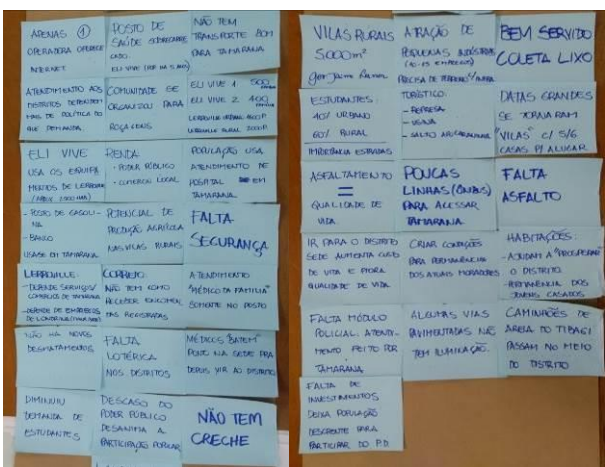 APENAS ①
OPERADORA OFERECE
INTERNET
POSTO DE
SAÚDE SOBRECARRE
GADO.
ELI VIVE
NÃO TEM
TRANSPORTE BOM
PARA TAMARANA
ATENDIMENTO AOS
DISTRITOS DEPENDEM
MAIS DE POLÍTICA DO
QUE DEMANDA.
COMUNIDADE SE
ORGANIZOU PARA
ROÇAGENS
ELI VIVE 1 500
ELI VIVE 2 400
LERROVILLE URBANA
LERROVILLE RURAL
ELI VIVE
USA OS EQUIPA
MENTOS DE LERROVILLE
RENDA:
- PODER PÚBLICO
- COMÉRCIO LOCAL
POPULAÇÃO USA
ATENDIMENTO DE
HOSPITAL EM
TAMARANA
- POSTO DE GASOLI-
NA
- BANCO
USADO EM TAMARANA
POTENCIAL DE
PRODUÇÃO AGRÍCOLA
NAS VILAS RURAIS
FALTA
SEGURANÇA
LERROVILLE:
- DEPENDE SERVIÇOS/
COMÉRCIO DE TAMARANA
- DEPENDE DE EMPREGOS
DE LONDRINA
CORREIO:
NÃO TEM COMO
RECEBER ENCOMEN
DAS REGISTRADAS
ATENDIMENTO
"MÉDICO DA FAMÍLIA"
SOMENTE NO POSTO
NÃO HÁ NOVOS
DESMATAMENTOS
FALTA
LOTÉRICA
NOS DISTRITOS
MÉDICOS "BATEM"
PONTO NA SEDE PRA
DEPOIS VIR AO DISTRITO
DIMINUIU
DEMANDA DE
ESTUDANTES
DESCASO DO
PODER PÚBLICO
DESANIMA A
PARTICIPAÇÃO POPULAR
NÃO TEM
CRECHE
VILAS RURAIS
5.000m²
ATRAÇÃO DE
PEQUENAS INDÚSTRIAS
(10-15 EMPREGOS)
PRECISA DE TERRENO
BEM SERVIDO
COLETA LIXO
ESTUDANTES:
40% URBANO
60% RURAL
IMPORTÂNCIA ESTRADAS
TURÍSTICO:
- REPRESA
- USINA
- SALTO APUCARANINHA
DATAS GRANDES
SE TORNARAM
"VILAS" C/ 5/6
CASAS P/ ALUGAR
ASFALTAMENTO
=
QUALIDADE DE
VIDA
POUCAS
LINHAS (ÔNIBUS)
PARA ACESSAR
TAMARANA
FALTA
ASFALTO
IR PARA O DISTRITO
SEDE AUMENTA CUSTO
DE VIDA E PIORA
QUALIDADE DE VIDA
CRIAR CONDIÇÕES
PARA PERMANÊNCIA
DOS ATUAIS MORADORES
HABITAÇÕES:
- AJUDAM A "PROSPERAR"
O DISTRITO
- PERMANÊNCIA DOS
JOVENS CASADOS
FALTA MÓDULO
POLICIAL. ATENDI-
MENTO FEITO POR
TAMARANA
ALGUMAS VIAS
PAVIMENTADAS NÃO
TEM ILUMINAÇÃO.
CAMINHÕES DE
AREIA DO TIBAGI
PASSAM NO MEIO
DO DISTRITO
FALTA DE
INVESTIMENTOS
DEIXA POPULAÇÃO
DESCRENTE PARA
PARTICIPAR DO P.D